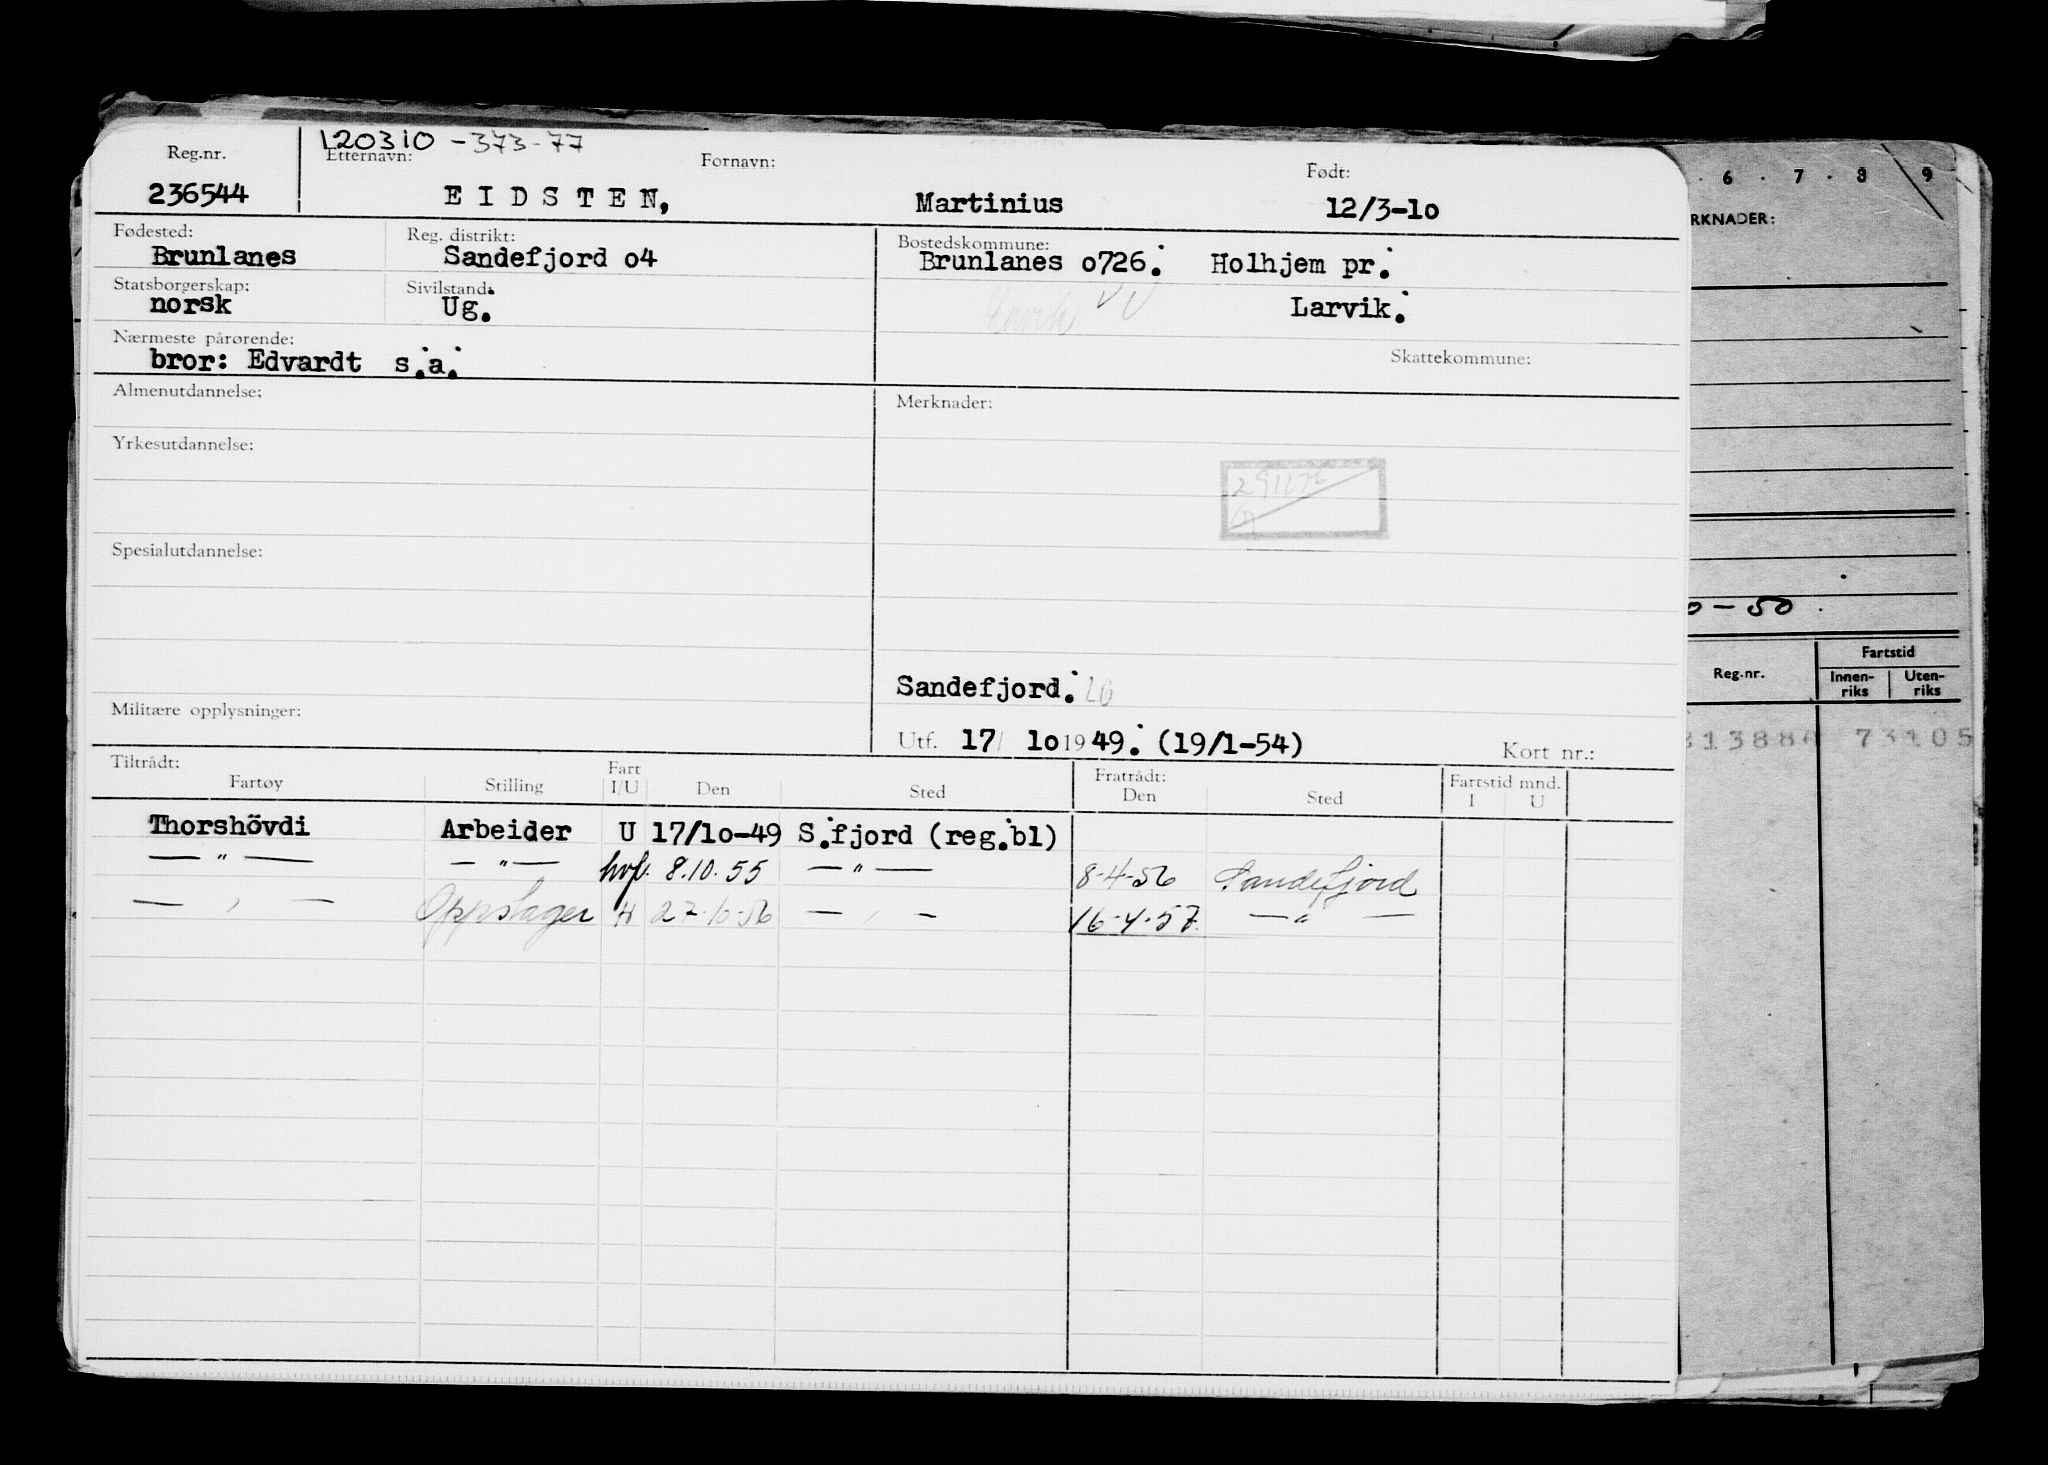 120310 - 373-77
Reg.nr. Etternavn: Fornavn: Født:
236544 EIDSTEN, Martinius 12/3-1o
Fødested: Reg. distrikt: Bostedskommune:
Brunlanes Sandefjord o4 Brunlanes o726. Holhjem pr.
Statsborgerskap: Sivilstand:
norsk Ug. Larvik.
Nærmeste pårørende: Skattekommune:
bror: Edvardt s.a.
Almenutdannelse: Merknader:
Yrkesutdannelse:
291276
Spesialutdannelse:
Sandefjord.
Militære opplysninger:
Utf. 17/ 1o 1949. (19/1-54) Kort nr.:
Tiltrådt: Fratrådt: Fartstid mnd.
Fartøy Stilling Fart I/U Den Sted Den Sted I U
Thorshövdi Arbeider U 17/1o-49 S.fjord (reg.bl)
— " — — " — hvf. 8.10.55 — " — 8-4-56 Sandefjord
— " — Oppslager H 27-10-56 — " — 16-4-57 — " —
6 . 7 . 8 9
RKNADER:
0 - 50
Reg.nr. Fartstid
Innen-riks Uten-riks